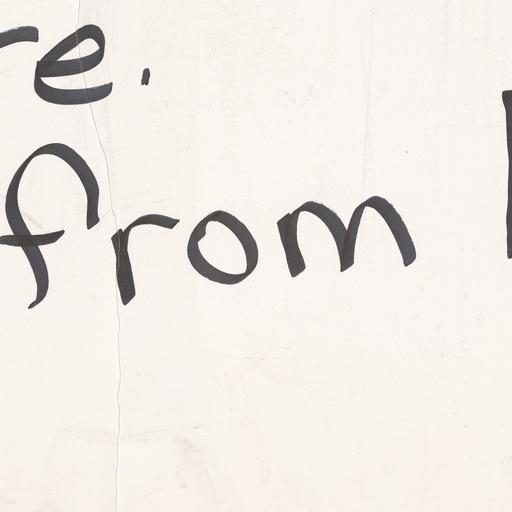 re.
from